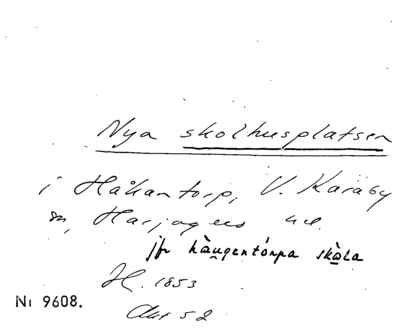 Nya skolhusplatsen
i Håkantorp, V. Karaby
sn, Harjagers hd.
jfr hàugentórpa skòla
H. 1853
Akt 52
Nr 9608.